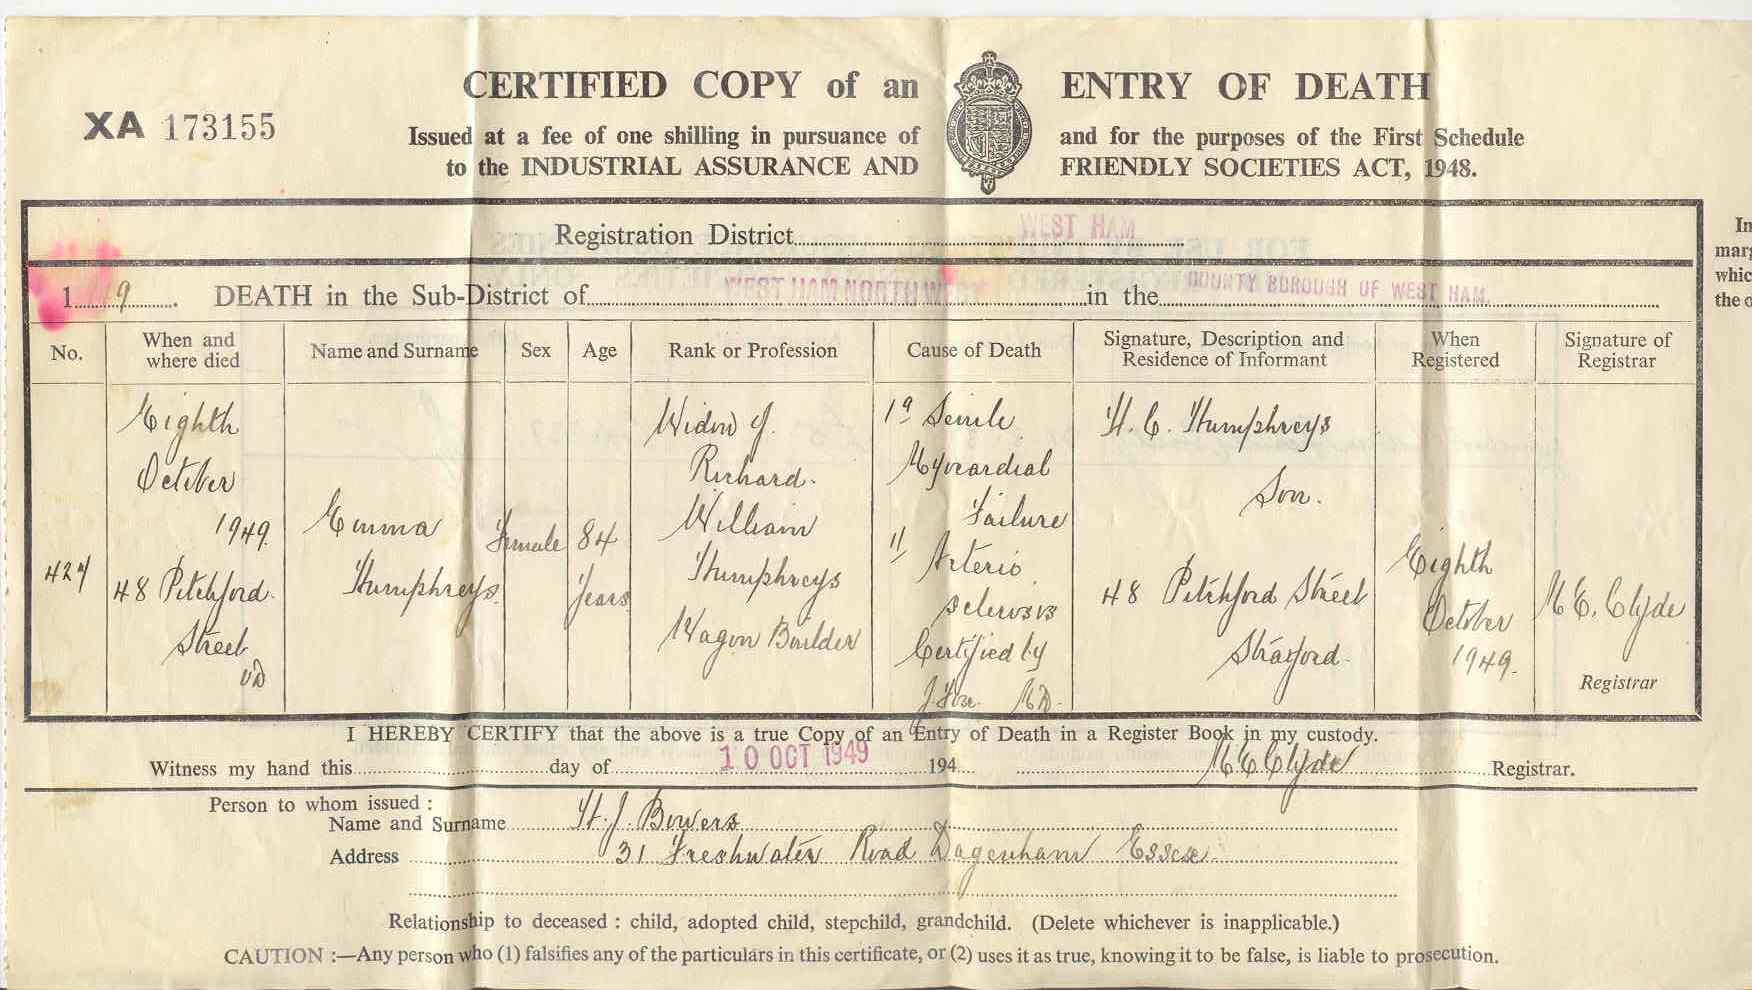 CERTIFIED COPY of an ENTRY OF DEATH
XA 173155
Issued at a fee of one shilling in pursuance of and for the purposes of the First Schedule
to the INDUSTRIAL ASSURANCE AND FRIENDLY SOCIETIES ACT, 1948.
Registration District WEST HAM
1 9 . DEATH in the Sub-District of WEST HAM NORTH in the COUNTY BOROUGH OF WEST HAM.
In
marg
whic
the o
No.
When and
where died
Name and Surname
Sex
Age
Rank or Profession
Cause of Death
Signature, Description and
Residence of Informant
When
Registered
Signature of
Registrar
427
Eighth
October
1949
48 Pitchford
Street
UD
Emma
Humphreys
Female
84
Years
Widow of
Richard
William
Humphreys
Wagon Builder
1a Senile
Myocardial
Failure
11 Arterio
sclerosis
Certified by
J. Fox MD.
H. C. Humphreys
Son.
48 Pitchford Street
Stratford.
Eighth
October
1949.
M E. Clyde
Registrar
I HEREBY CERTIFY that the above is a true Copy of an Entry of Death in a Register Book in my custody.
Witness my hand this day of 10 OCT 1949 194 M E Clyde Registrar.
Person to whom issued :
Name and Surname H. J. Bowers
Address 31 Freshwater Road Dagenham Essex.
Relationship to deceased : child, adopted child, stepchild, grandchild. (Delete whichever is inapplicable.)
CAUTION :—Any person who (1) falsifies any of the particulars in this certificate, or (2) uses it as true, knowing it to be false, is liable to prosecution.